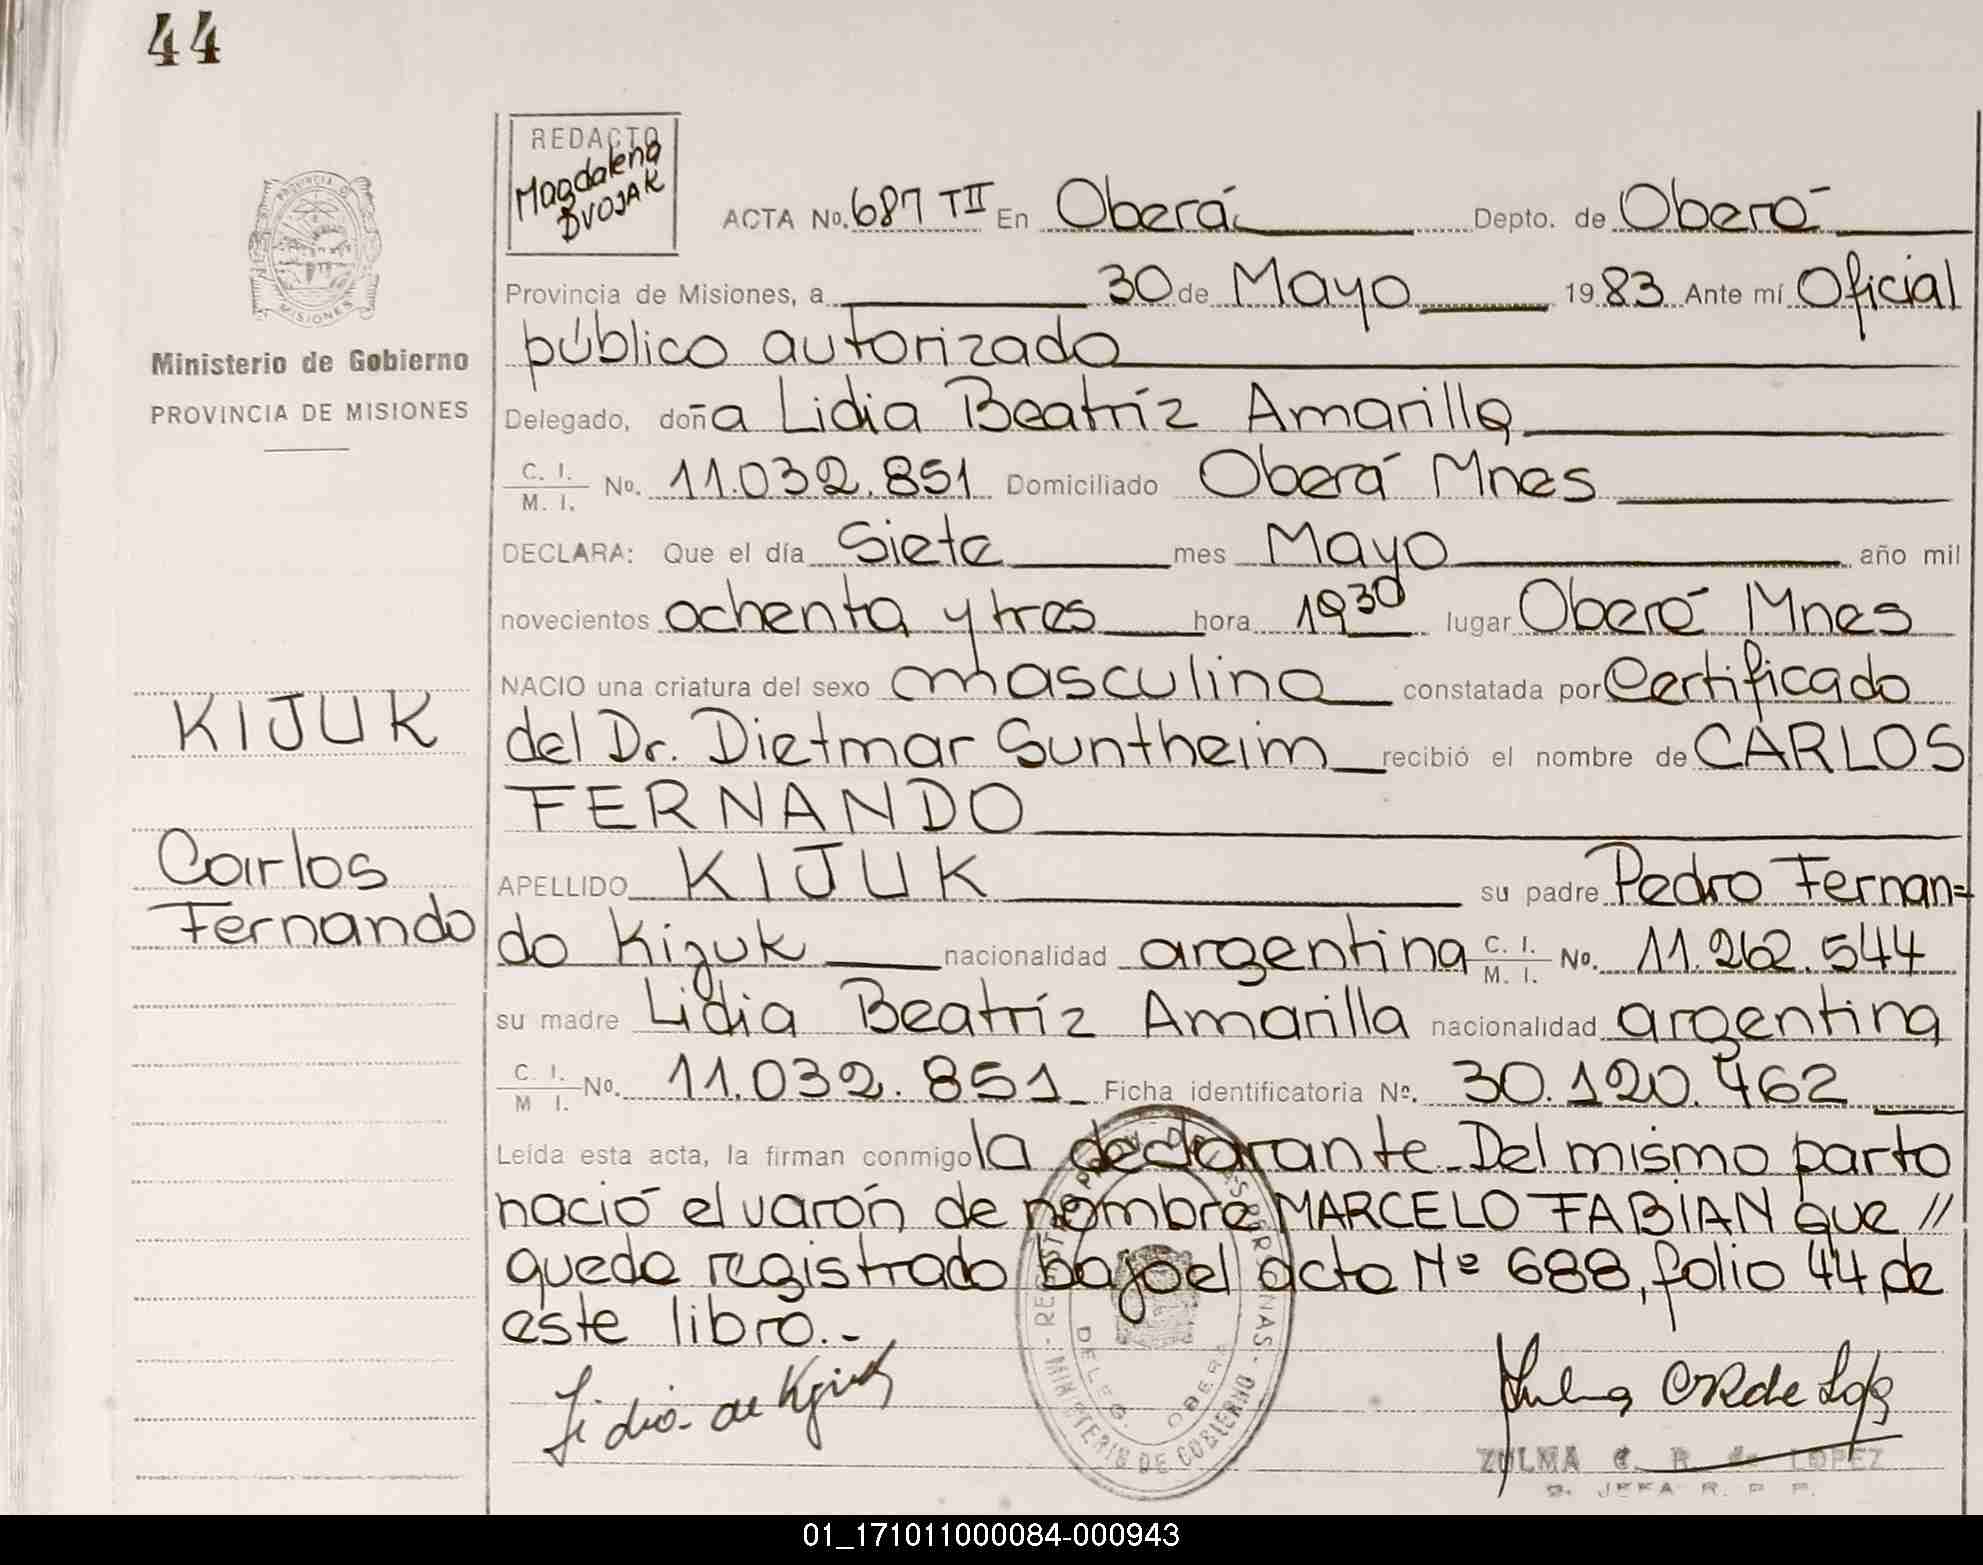 44
REDACTO
Magdalena
DVOJAK
PROVINCIA D
MISIONES
Ministerio de Gobierno
PROVINCIA DE MISIONES
ACTA No. 687 TII En Oberá Depto. de Oberá
Provincia de Misiones, a 30 de Mayo 1983 Ante mí Oficial
público autorizado
Delegado, doña Lidia Beatríz Amarilla
C. I. / M. I. No. 11.032.851 Domiciliado Oberá Mnes
DECLARA: Que el día Siete mes Mayo año mil
novecientos ochenta y tres hora 19 30 lugar Oberá Mnes
NACIO una criatura del sexo masculino constatada por Certificado
del Dr. Dietmar Suntheim recibió el nombre de CARLOS
FERNANDO
KIJUK
Carlos
Fernando
APELLIDO KIJUK su padre Pedro Fernan=
do Kijuk nacionalidad argentina C. I. / M. I. No. 11.262.544
su madre Lidia Beatríz Amarilla nacionalidad argentina
C. I. / M I. No. 11.032.851 Ficha identificatoria No. 30.120.462
Leída esta acta, la firman conmigo la declarante. Del mismo parto
nació el varón de nombre MARCELO FABIAN que //
queda registrado bajo el acta Nº 688, folio 44 de
este libro.-
Lidia de Kijuk
DELEG. OBERA
MINISTERIO DE GOBIERNO
ZULMA C. R. de LOPEZ
JEFA R. P. P.
01_171011000084-000943